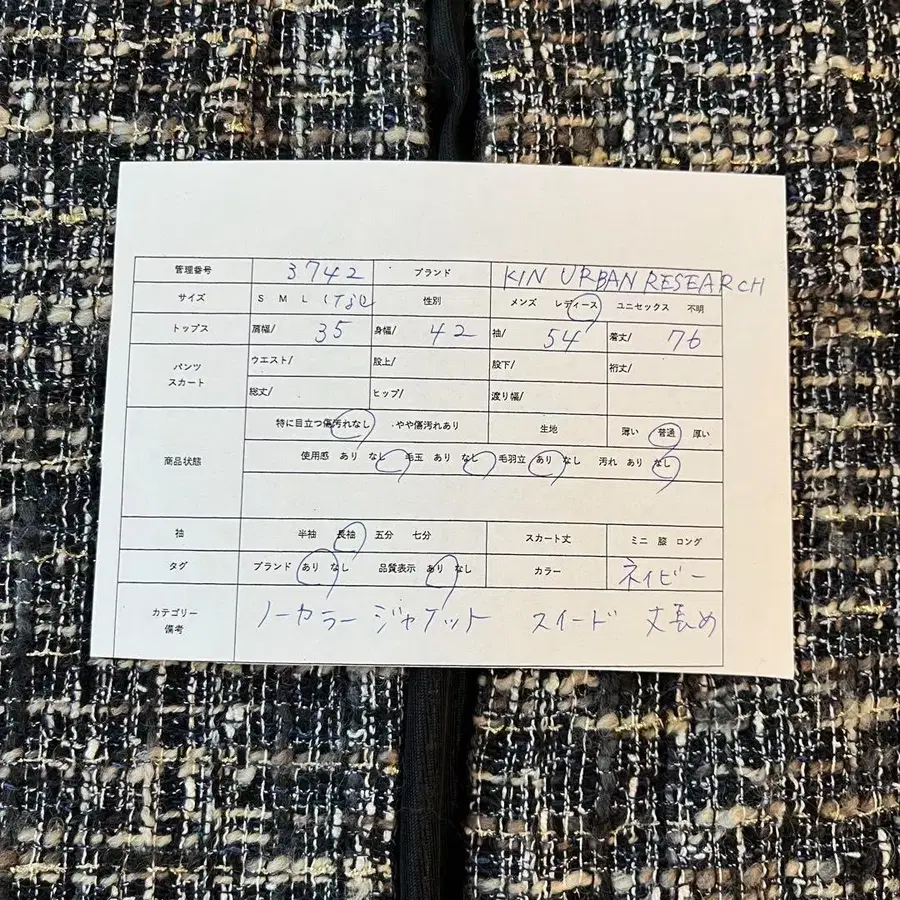 管理番号 3742 ブランド KIN URBAN RESEARCH
サイズ S M L 性別 メンズ レディース ユニセックス 不明
トップス 肩幅/ 35 身幅/ 42 袖/ 54 着丈/ 76
パンツ スカート ウエスト/ 股上/ 股下/ 裄丈/
総丈/ ヒップ/ 渡り幅/
商品状態 特に目立つ傷汚れなし ・やや傷汚れあり 生地 薄い 普通 厚い
使用感 あり なし 毛玉 あり なし 毛羽立 あり なし 汚れ あり なし
袖 半袖 長袖 五分 七分 スカート丈 ミニ 膝 ロング
タグ ブランド あり なし 品質表示 あり なし カラー ネイビー
カテゴリー 備考 ノーカラージャケット スイード 丈長め